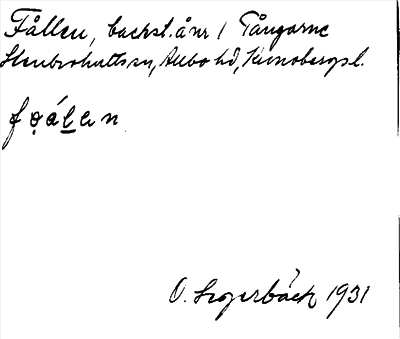 Fållen, backst. å nr 1 Tångarne
Stenbrohults sn, Allbo hd, Kronobergs l.
fo̤ál̲en
O. Segerbäck 1931